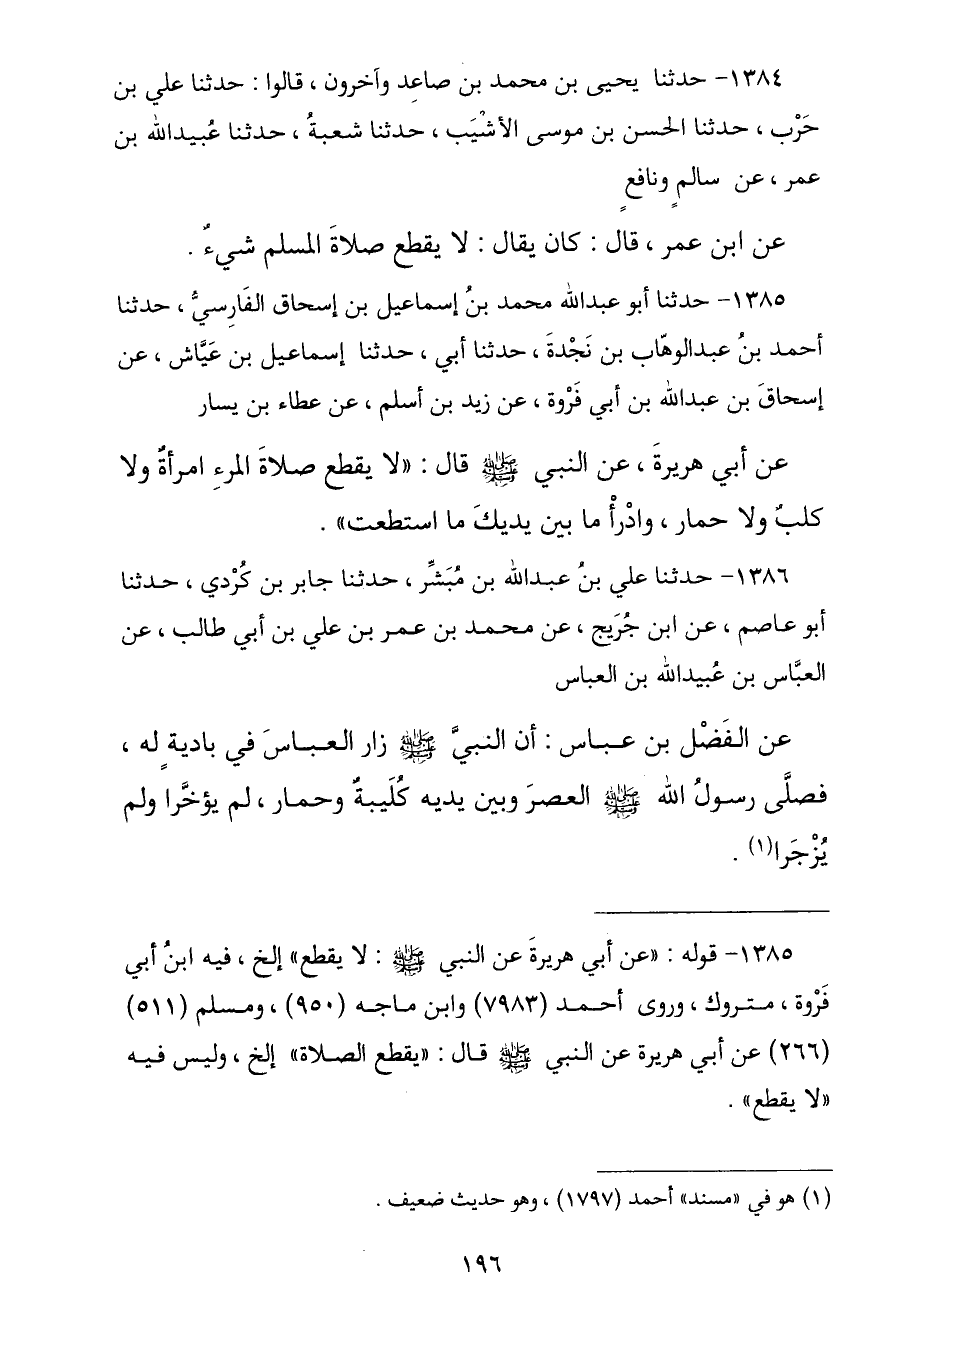 ١٣٨٤- حدثنا يحيى بن محمد بن صاعِد وآخرون ، قالوا : حدثنا علي بن
حَرْب ، حدثنا الحسن بن موسى الأشْيَب ، حدثنا شعبةُ ، حدثنا عُبيدالله بن
عمر ، عن سالمٍ ونافعٍ
عن ابن عمر ، قال : كان يقال : لا يقطع صلاةَ المسلم شيءٌ .
١٣٨٥- حدثنا أبو عبدالله محمد بنُ إسماعيل بن إسحاق الفَارِسيُّ ، حدثنا
أحمد بنُ عبدالوهّاب بن نَجْدةَ ، حدثنا أبي ، حدثنا إسماعيل بن عَيَّاش ، عن
إسحاقَ بن عبدالله بن أبي فَرْوة ، عن زيد بن أسلم ، عن عطاء بن يسار
عن أبي هريرةَ ، عن النبي ﷺ قال : «لا يقطع صلاةَ المرءِ امرأةٌ ولا
كلبٌ ولا حمار ، وادْرأْ ما بين يديكَ ما استطعت» .
١٣٨٦- حدثنا علي بنُ عبدالله بن مُبَشِّر ، حدثنا جابر بن كُرْدي ، حدثنا
أبو عاصم ، عن ابن جُرَيج ، عن محمد بن عمر بن علي بن أبي طالب ، عن
العبَّاس بن عُبيدالله بن العباس
عن الفَضْل بن عباس : أن النبيَّ ﷺ زار العباسَ في باديةٍ له ،
فصلَّى رسولُ الله ﷺ العصرَ وبين يديه كُلَيبةٌ وحمار ، لم يؤخَّرا ولم
يُزْجَرا(١) .
١٣٨٥- قوله : «عن أبي هريرةَ عن النبي ﷺ : لا يقطع» إلخ ، فيه ابنُ أبي
فَرْوة ، متروك ، وروى أحمد (٧٩٨٣) وابن ماجه (٩٥٠) ، ومسلم (٥١١)
(٢٦٦) عن أبي هريرة عن النبي ﷺ قال : «يقطع الصلاة» إلخ ، وليس فيه
«لا يقطع» .
(١) هو في «مسند» أحمد (١٧٩٧) ، وهو حديث ضعيف .
١٩٦